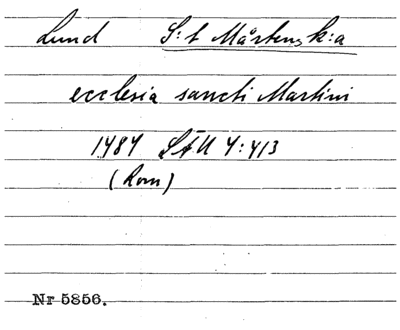 Lund S:t Mårtens k:a
ecclesia sancti Martini
1484 SFU 4:413
(Rom)
Nr 5856.